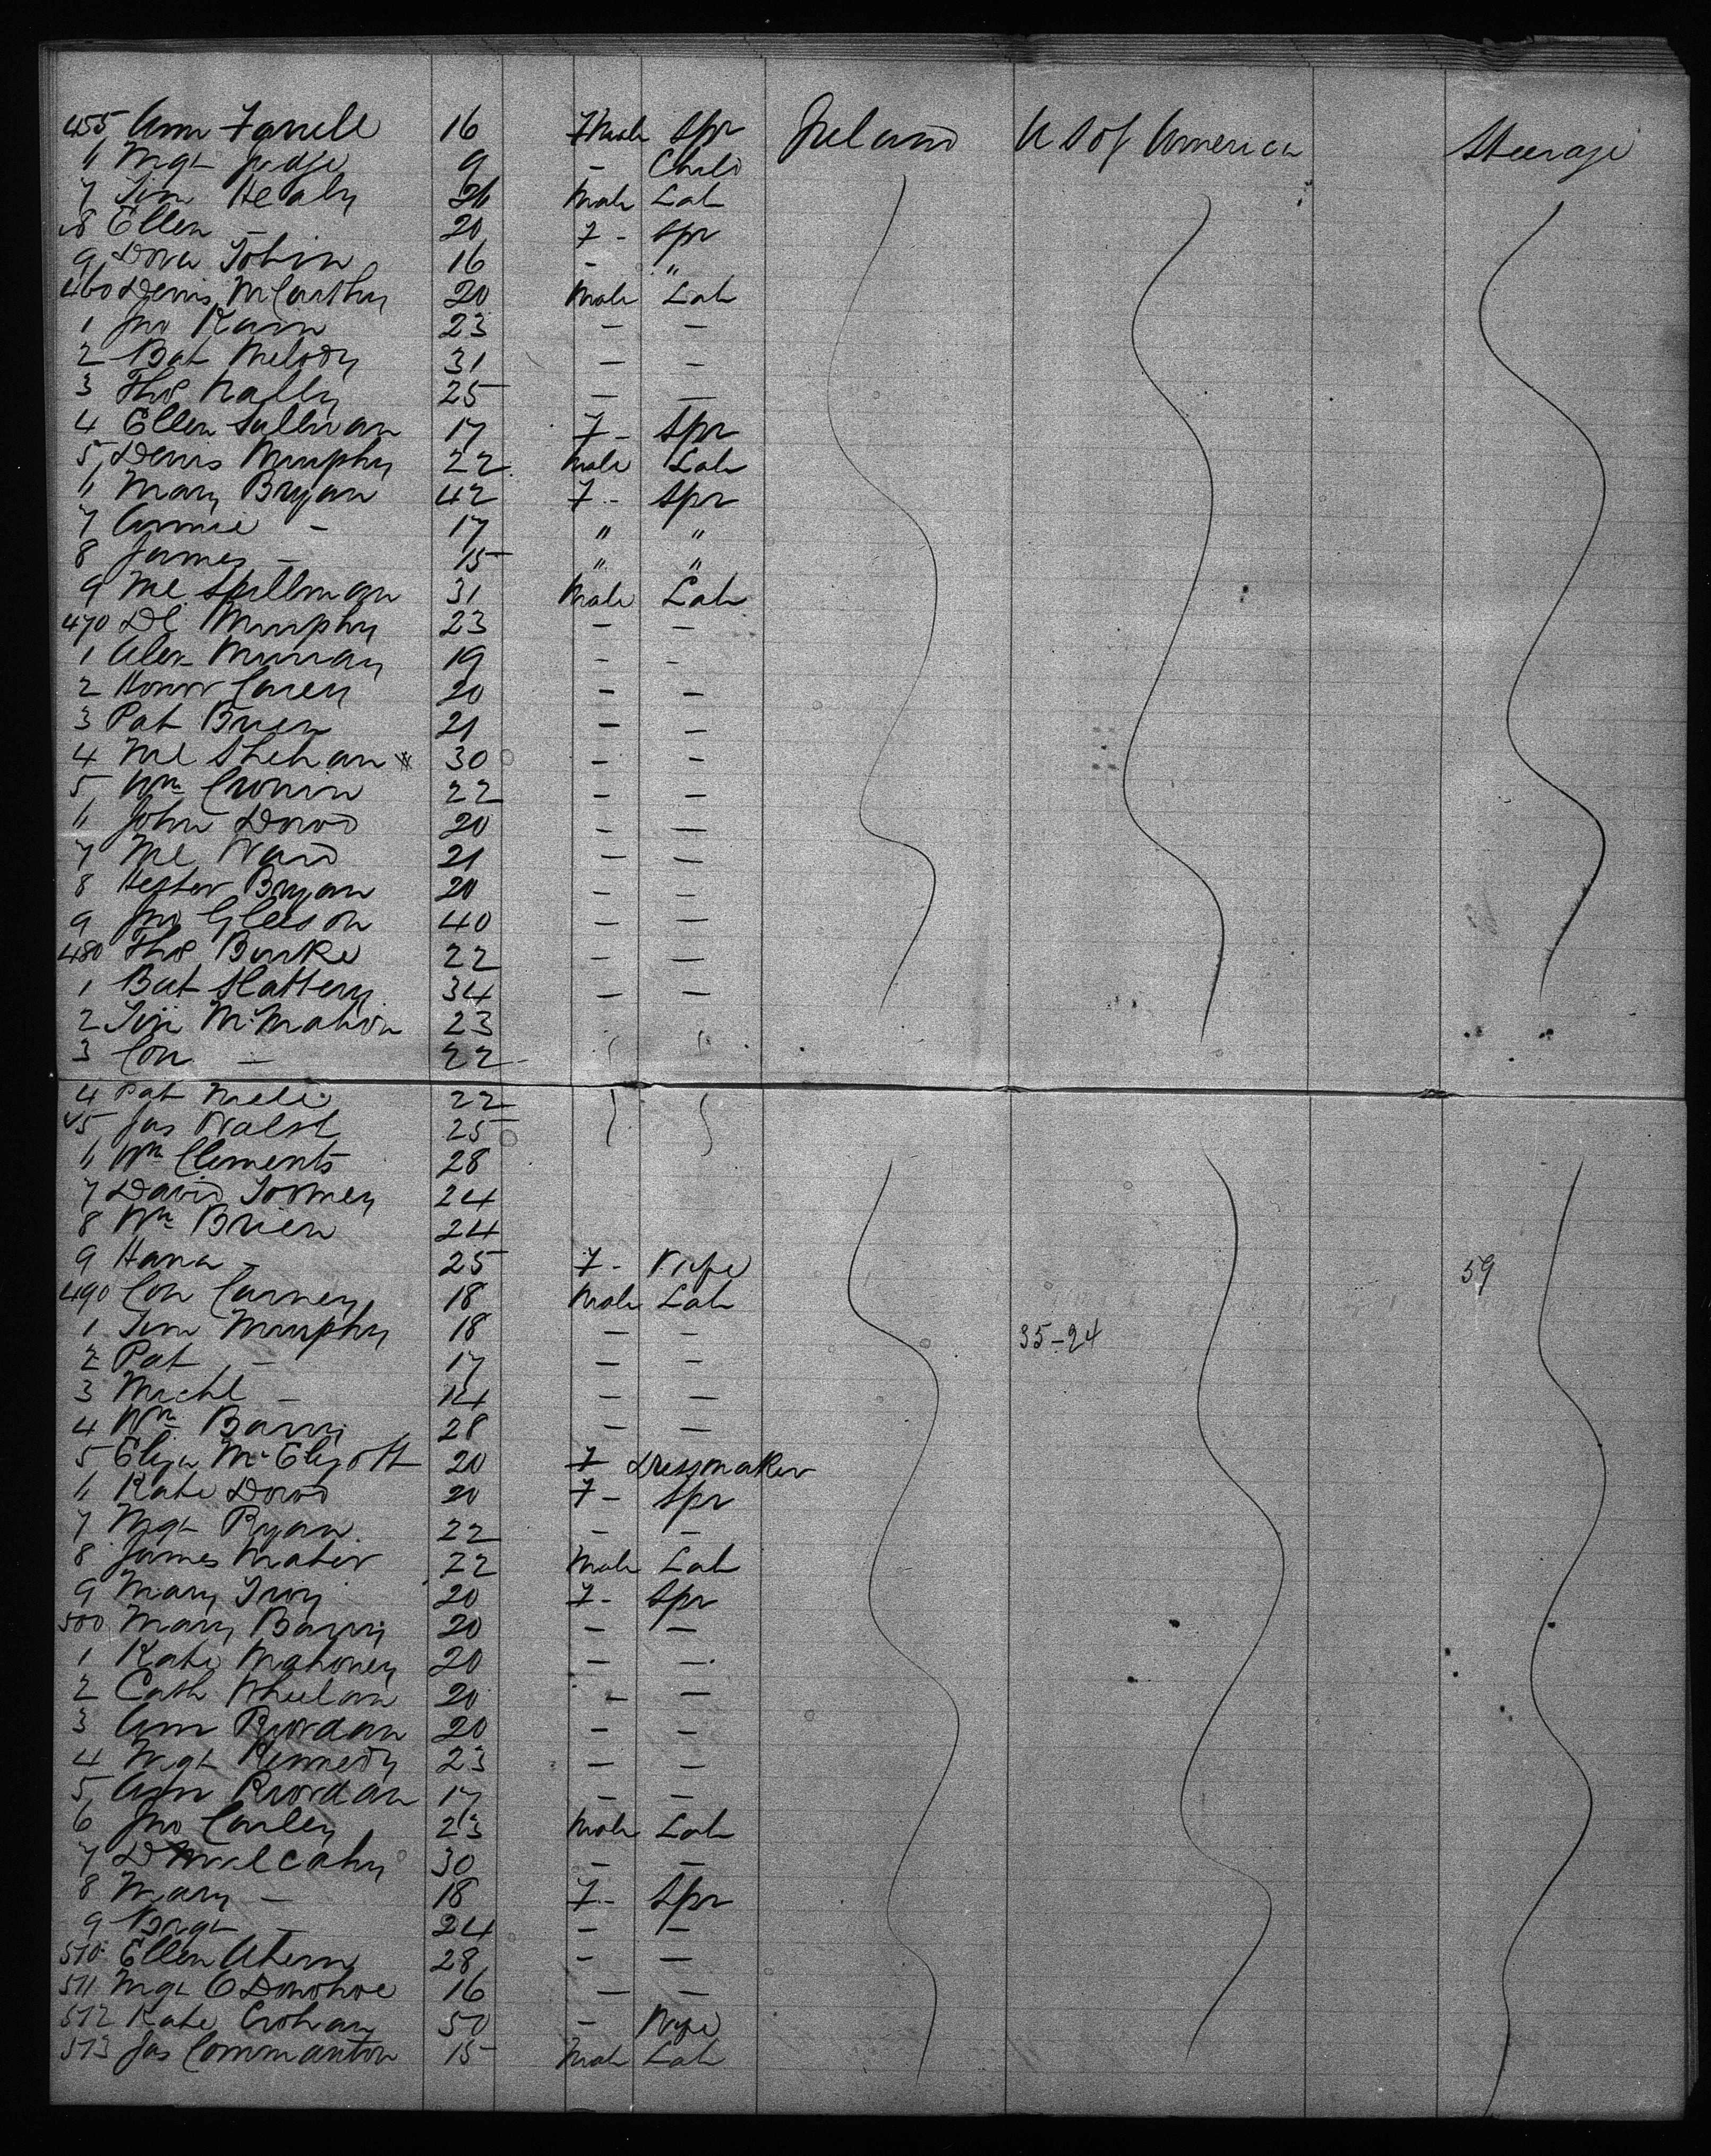 455 Ann Farrell 16 Fmale Spr Ireland U S of America Steerage
6 Mgt Judge 9 - Child
7 Tim Healy 26 Male Lab
8 Ellen - 20 F - Spr
9 Dora Tobin 16 - "
460 Denis McCarthy 20 Male Lab
1 Jno Kain 23 - -
2 Bat Melody 31 - -
3 Thos Nally 25 - -
4 Ellen Sullivan 17 F - Spr
5 Denis Murphy 22 Male Lab
6 Mary Bryan 42 F - Spr
7 Annie - 17 " "
8 James - 15 " "
9 Ml Spillman 31 Male Lab
470 Dl Murphy 23 - -
1 Alex Murray 19 - -
2 Honor Carey 20 - -
3 Pat Brien 21 - -
4 Ml Shehan 30 - -
5 Wm Cronin 22 - -
6 John Dowd 20 - -
7 Ml Ward 21 - -
8 Hester Bryan 20 - -
9 Jno Gleeson 40 - -
480 Thos Burke 22 - -
1 Bat Slattery 34 - -
2 Tim McMahon 23
3 Con - 22
4 Pat 22
5 Jas Walsh 25
6 Wm Clements 28
7 David Tormey 24
8 Wm Brien 24
9 Hana - 25 F - Wife 59
490 Con Carney 18 Male Lab
1 Tim Murphy 18 - - 35-24
2 Pat - 17 - -
3 Michl - 14 - -
4 Wm Barry 28 - -
5 Eliza McElgott 20 F Dressmaker
6 Kate Dowd 20 F - Spr
7 Mgt Ryan 22 - -
8 James Maher 22 Male Lab
9 Mary 20 F - Spr
500 Mary Barry 20 - -
1 Kate Mahoney 20 - -
2 Cath Wheelan 20 - -
3 Ann Riordan 20 - -
4 Mgt Kennedy 23 - -
5 Ann Riordan 17 - -
6 Jno Curley 23 Male Lab
7 D Mulcahy 30 - -
8 Mary - 18 F - Spr
9 Bridgt - 24 - -
510 Ellen Ahern 28 - -
511 Mgt O Donohoe 16 - -
512 Kate Crohan 50 - Wife
513 Jas Commanton 15 Male Lab